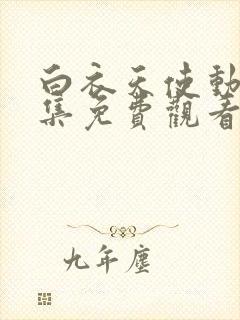 白衣天使動
集免費觀看
九年塵